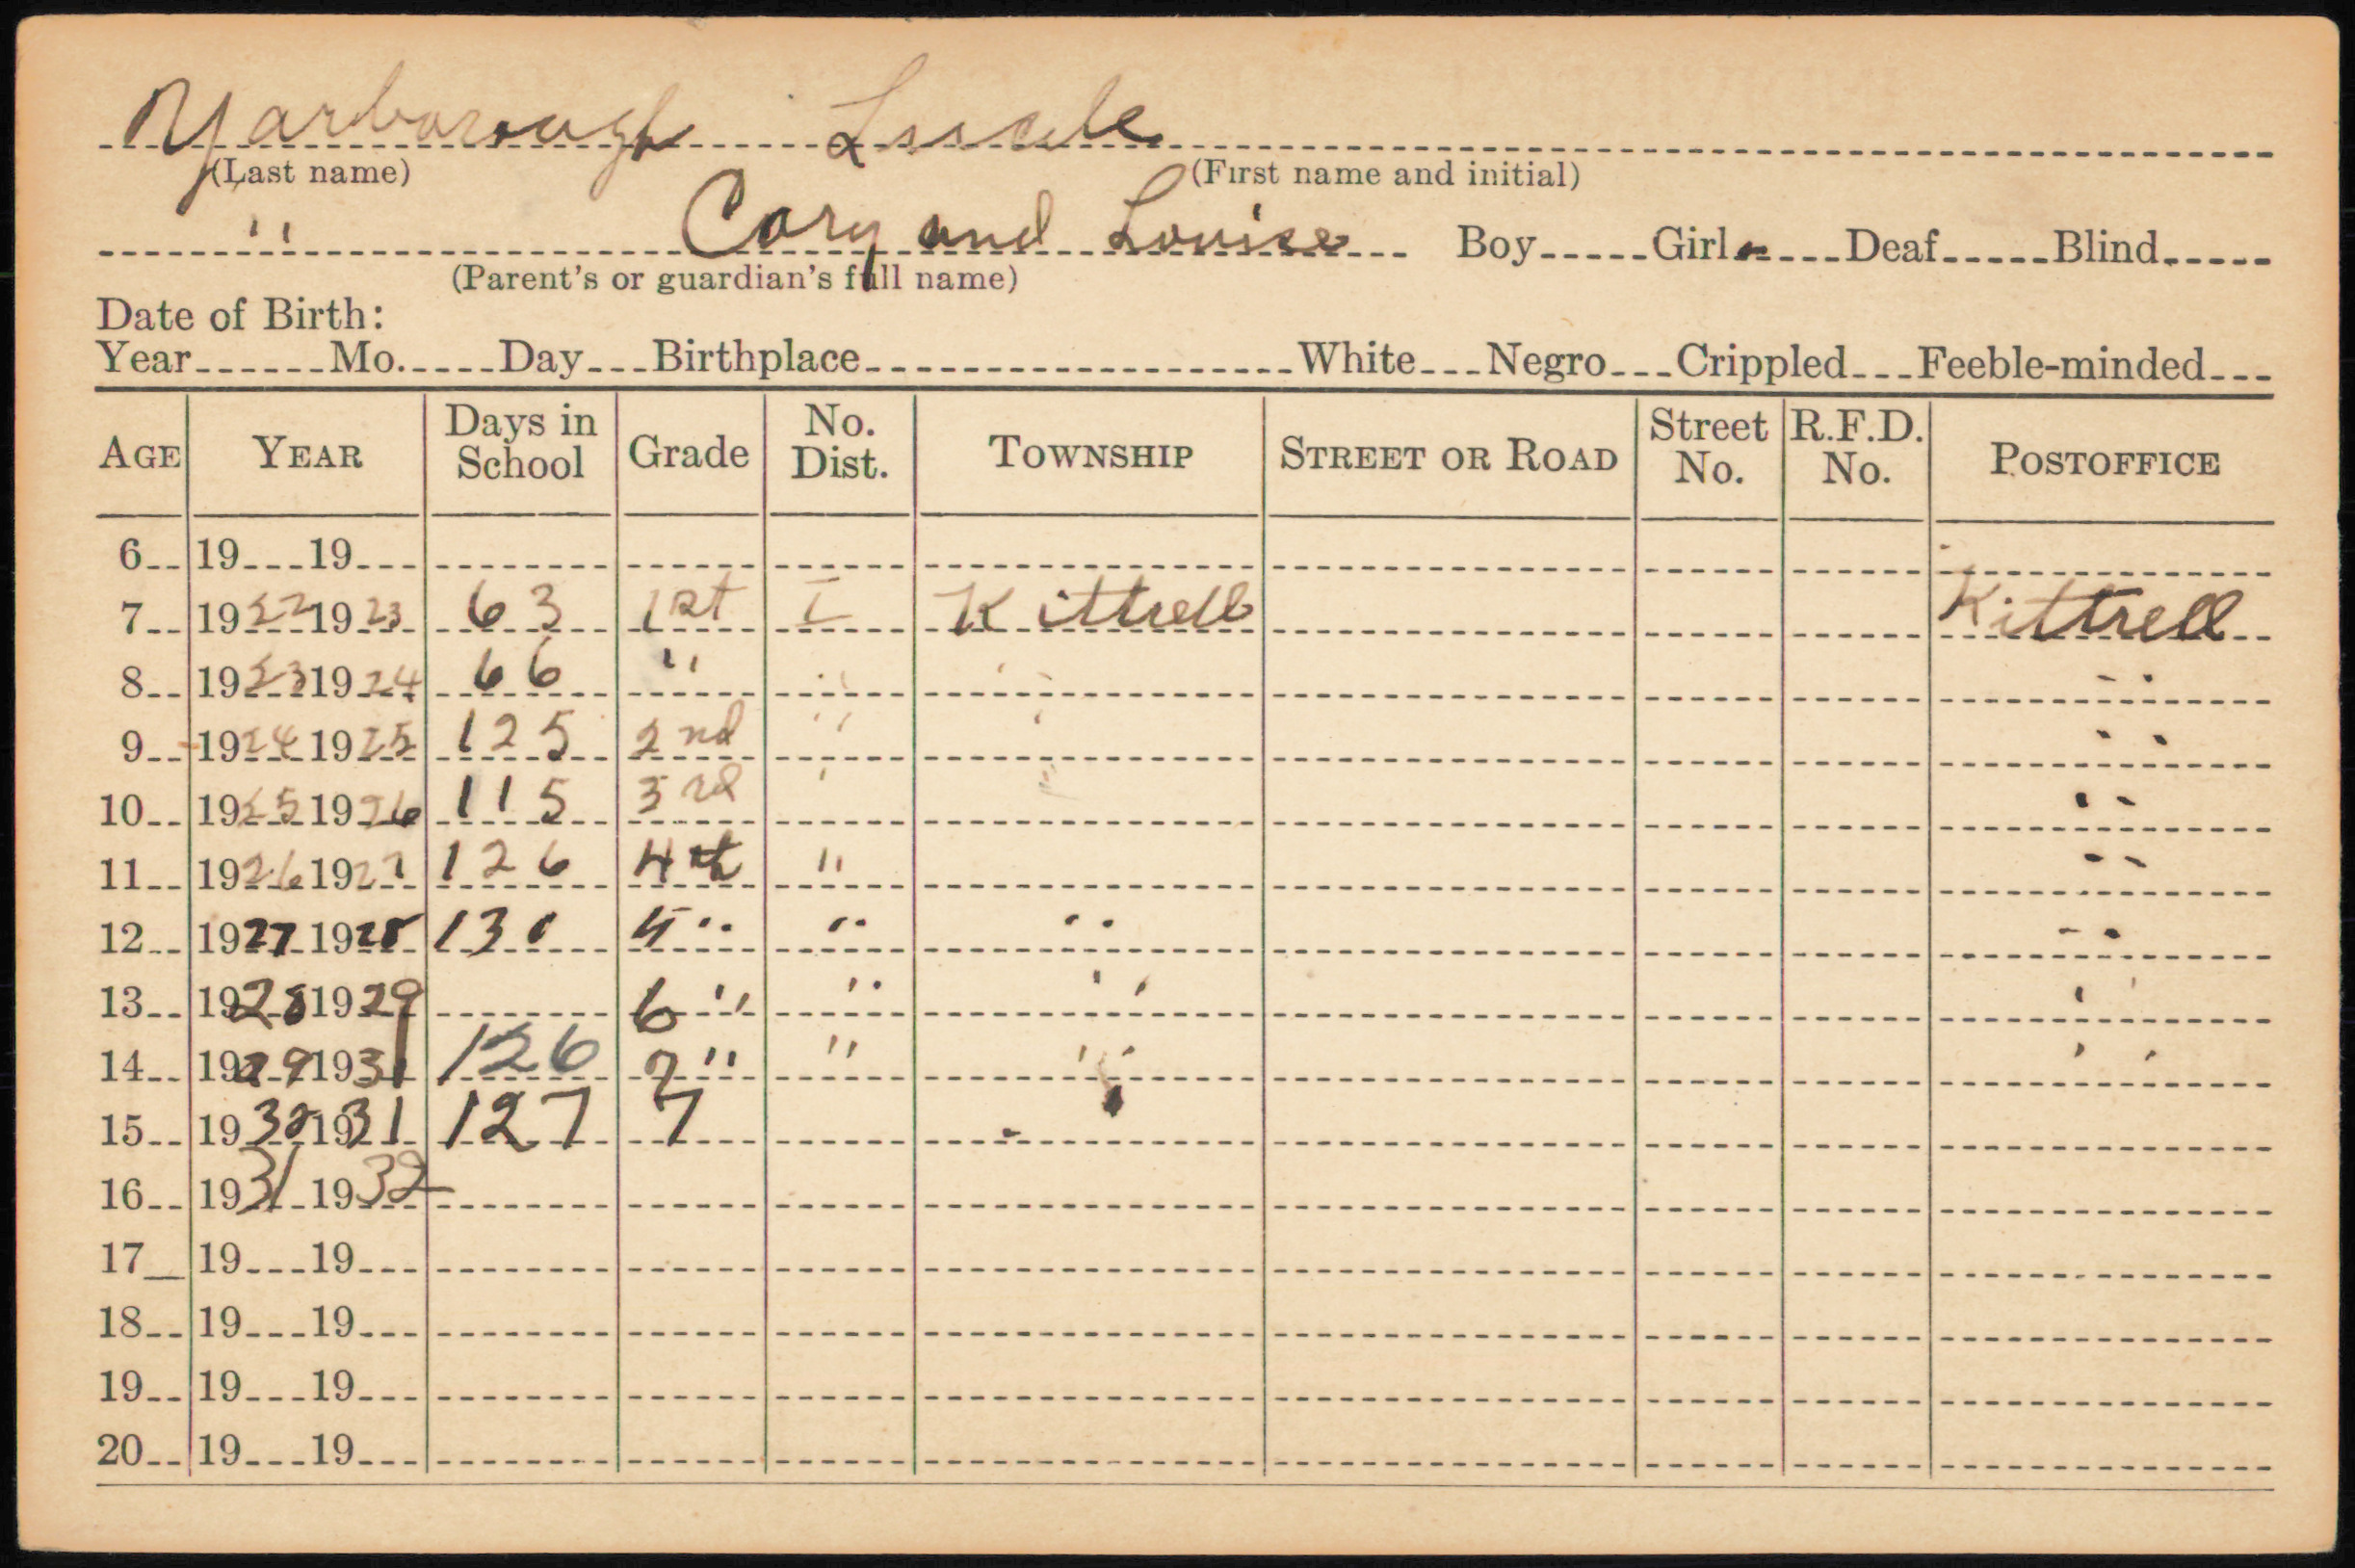 Yarborough Lucile
(Last name) (First name and initial)
" Cary and Louise Boy Girl Deaf Blind
(Parent's or guardian's full name)
Date of Birth:
Year Mo. Day Birthplace White Negro Crippled Feeble-minded
AGE YEAR Days in School Grade No. Dist. TOWNSHIP STREET OR ROAD Street No. R.F.D. No. POSTOFFICE
6 19 19
7 1922 1923 63 1st I Kittrell Kittrell
8 1923 1924 66 " " " "
9 1924 1925 125 2nd " " "
10 1925 1926 115 3rd " " "
11 1926 1927 126 4th " "
12 1927 1928 130 5 " " " "
13 1928 1929 6 " " " "
14 1929 1931 126 7 " " " "
15 1930 1931 127 7
16 1931 1932
17 19 19
18 19 19
19 19 19
20 19 19